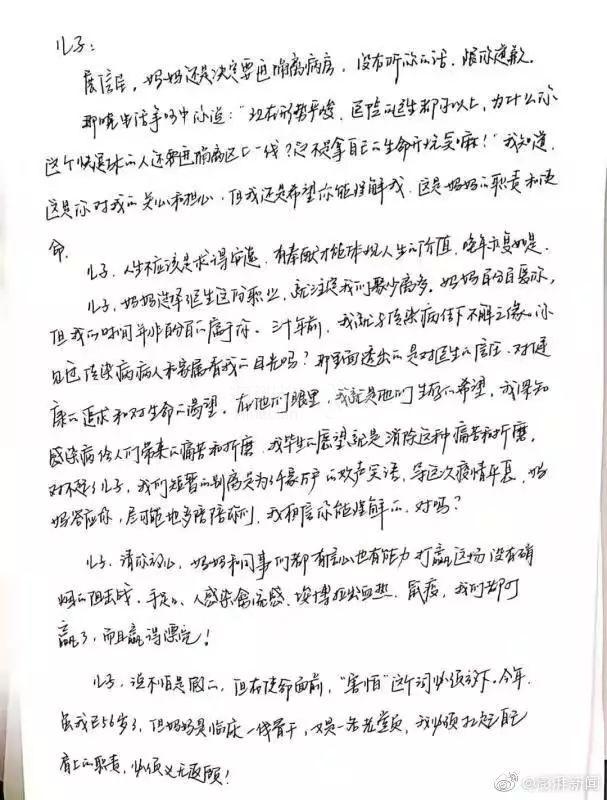 儿子：
展信佳，妈妈还是决定要进隔离病房，没有听你的话，跟你道歉。
那晚电话争吵中你说：“现在形势严峻，医院的医生那么多，为什么你
这个快退休的人还要进隔离区上一线？这不是拿自己的生命开玩笑嘛！”我知道，
这是你对我的关心和担心，但我还是希望你能理解我，这是妈妈的职责和使
命。
儿子，人生不应该是求得安逸，有奉献才能体现人生的价值，晚年亦复如是。
儿子，妈妈选择医生这份职业，就注定我们聚少离多。妈妈百分百爱你，
但我的时间并非百分百的属于你。三十年前，我就与传染病结下不解之缘。你
见过传染病病人和家属看我的目光吗？那里面透出的是对医生的信任、对健
康的追求和对生命的渴望。在他们眼里，我就是他们生存的希望，我深知
感染病给人们带来的痛苦和折磨，我毕生的愿望就是消除这种痛苦和折磨。
对不起了儿子，我们短暂的别离是为了千家万户的欢声笑语，等这次疫情平息，妈
妈答应你，尽可能地多陪陪你们，我相信你能理解的，对吗？
儿子，请你放心，妈妈和同事们都有信心也有能力打赢这场没有硝
烟的阻击战。手足口、人感染禽流感、埃博拉出血热、鼠疫，我们都打
赢了，而且赢得漂亮！
儿子，说不怕是假的，但在使命面前，“害怕”这个词必须放下。今年
虽我已56岁了，但妈妈是临床一线骨干，又是一名老党员，我必须扛起自己
肩上的职责，必须义无返顾！
@澎湃新闻